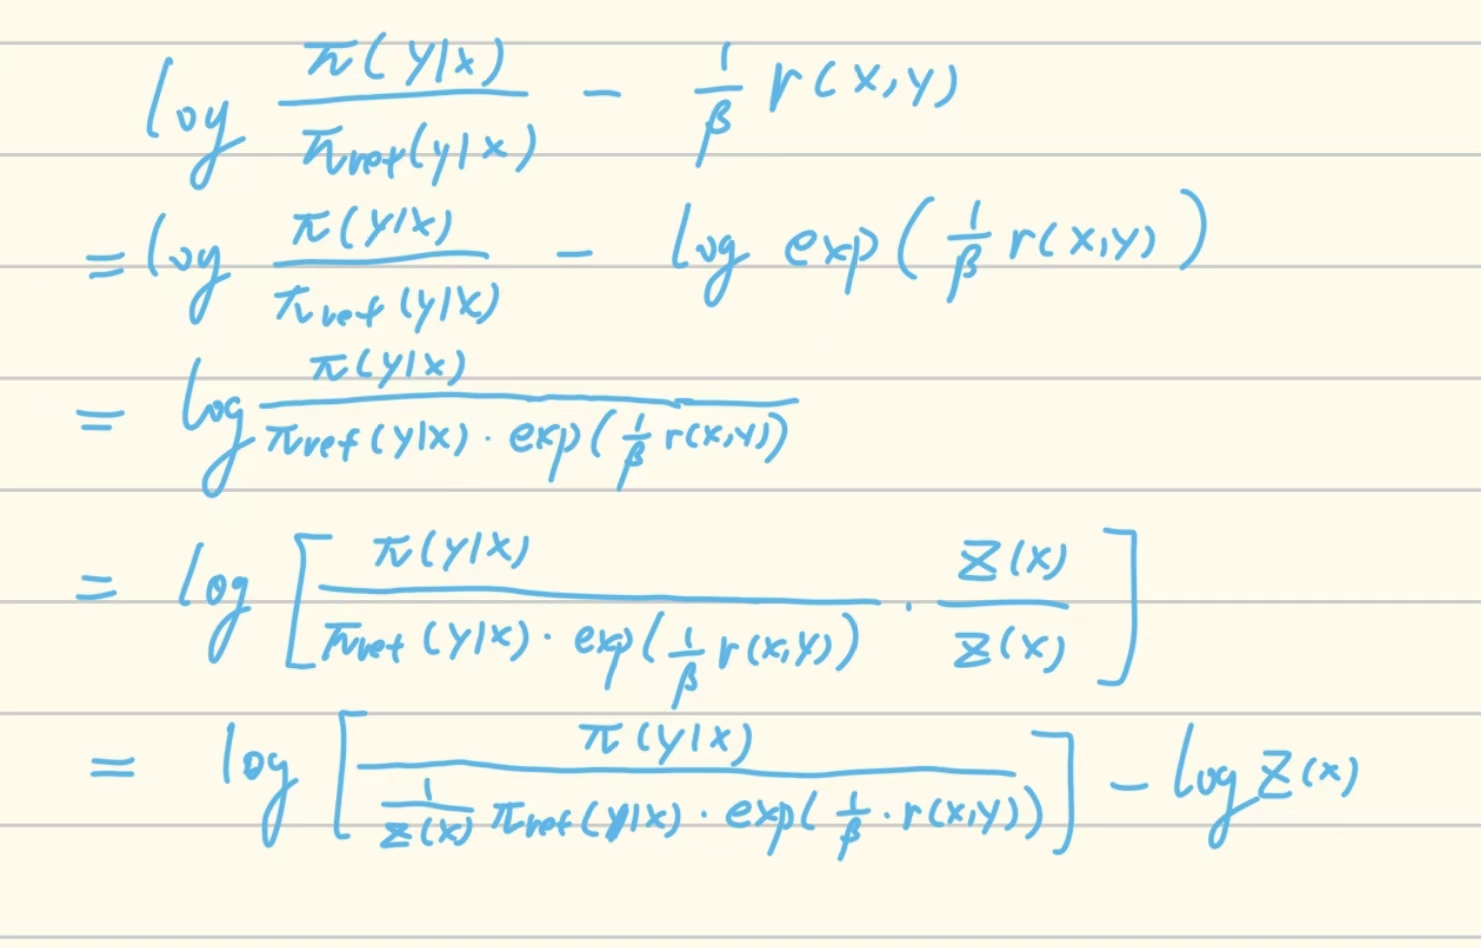 log π(y|x)/π_ref(y|x) - 1/β r(x,y)
= log π(y|x)/π_ref(y|x) - log exp(1/β r(x,y))
= log π(y|x)/(π_ref(y|x) · exp(1/β r(x,y)))
= log [π(y|x)/(π_ref(y|x) · exp(1/β r(x,y))) · Z(x)/Z(x)]
= log [π(y|x)/(1/Z(x) π_ref(y|x) · exp(1/β · r(x,y)))] - log Z(x)